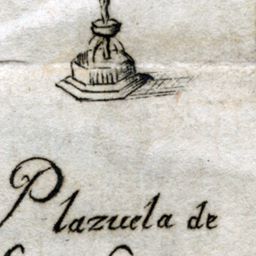 Plazuela de